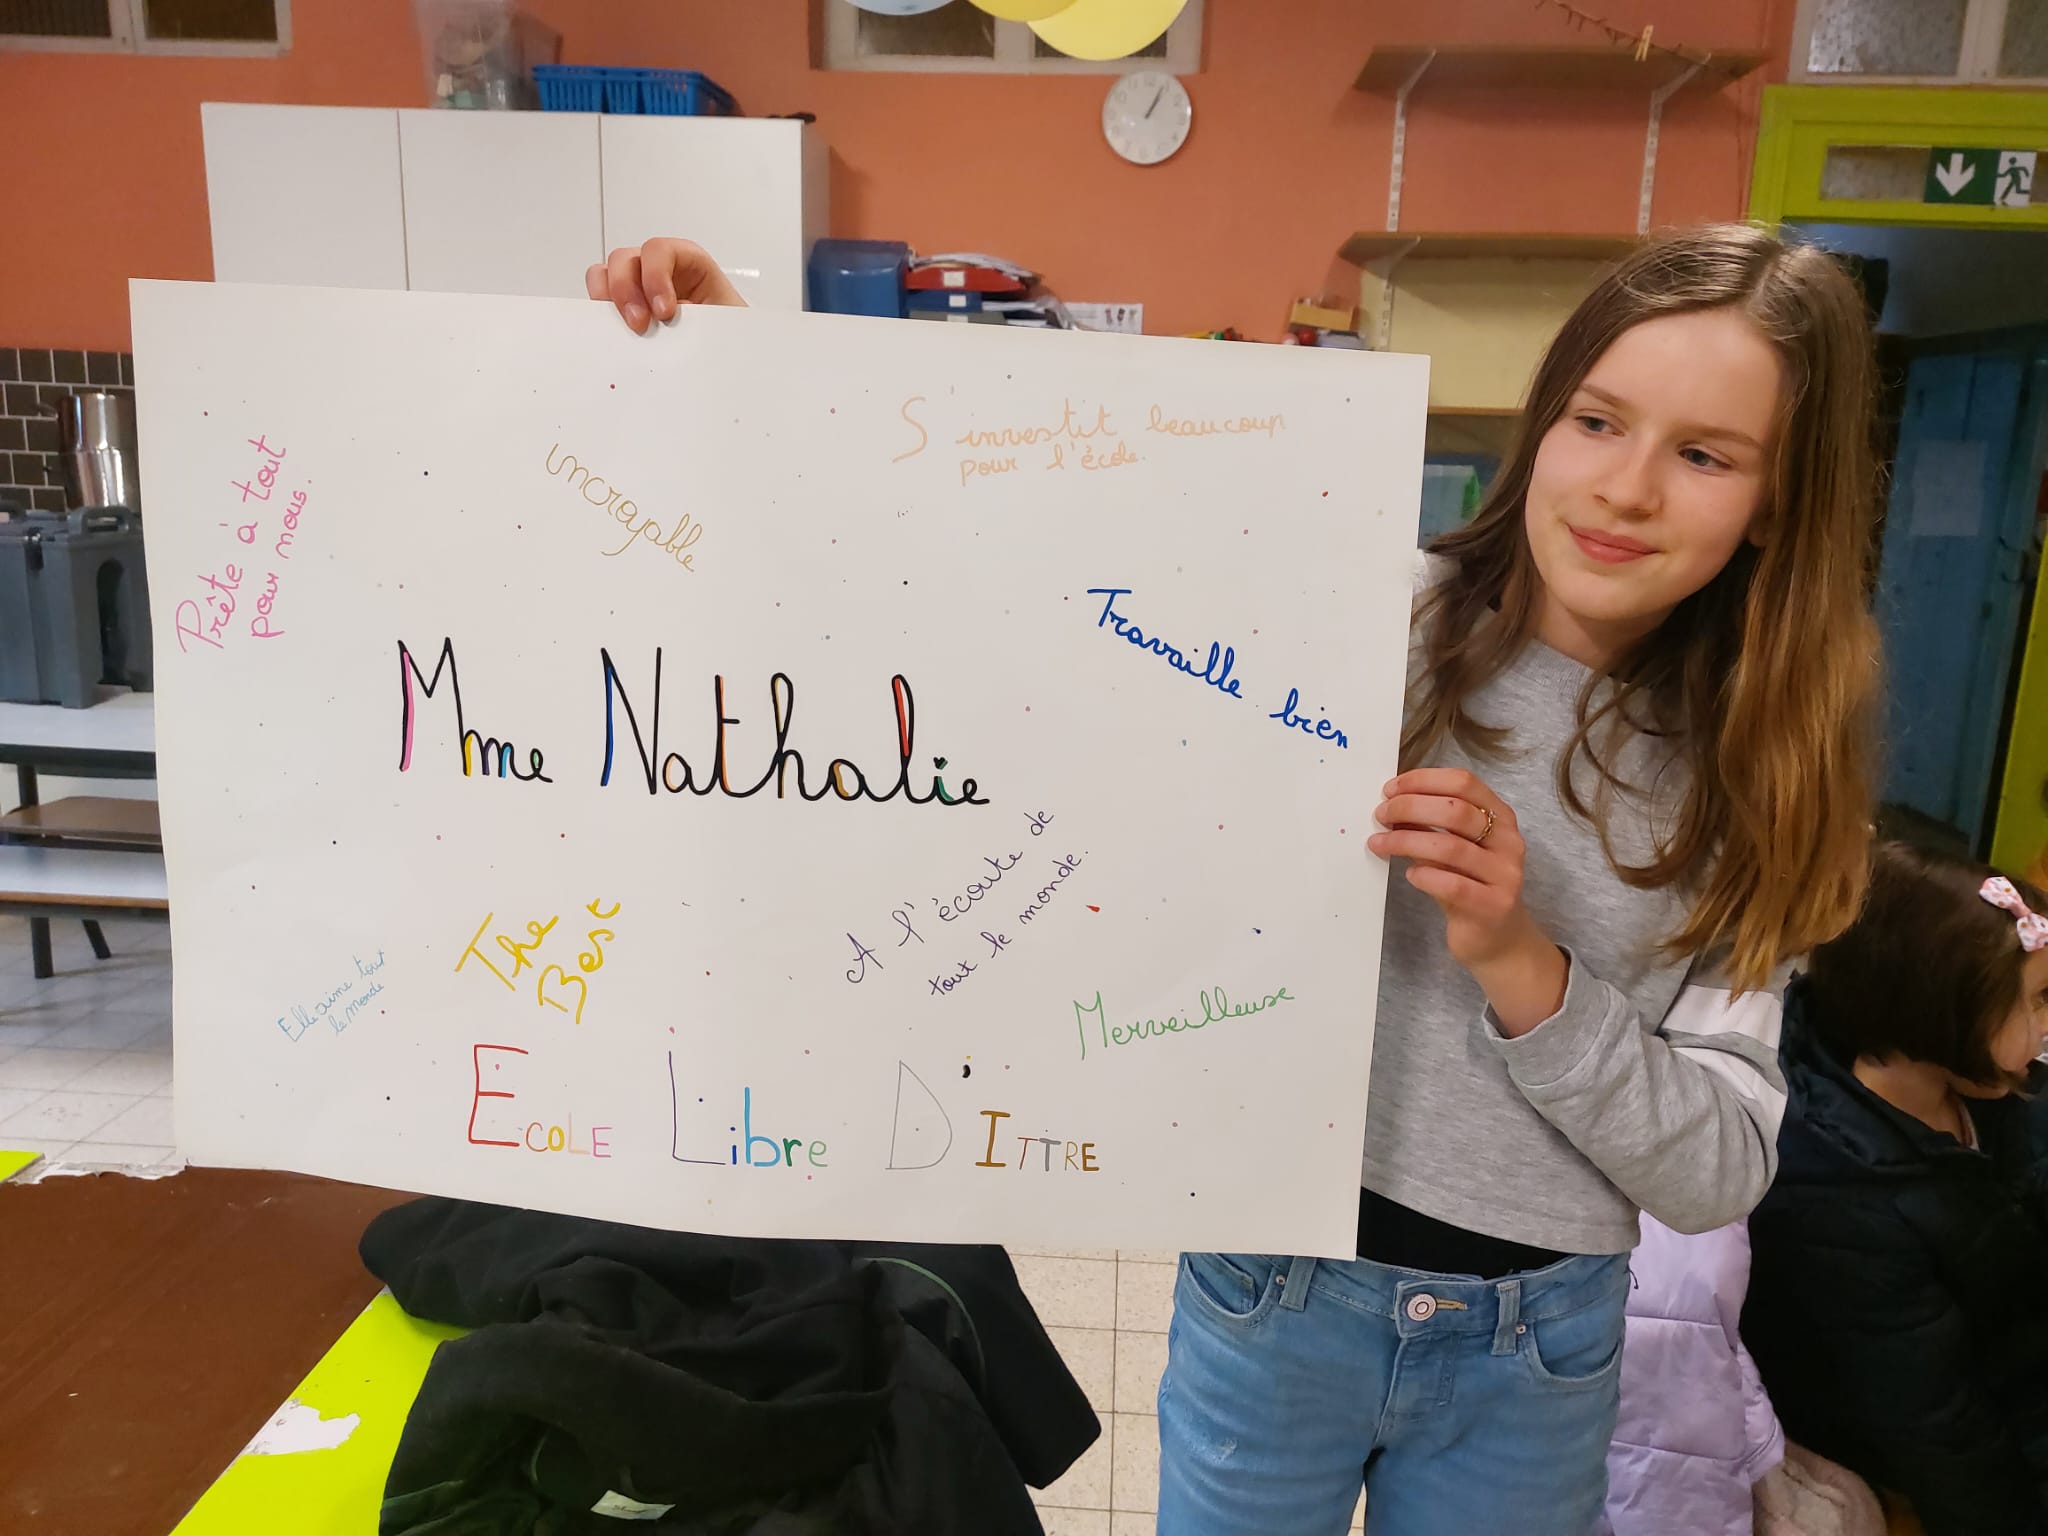 S'investit beaucoup
pour l'école.
Prête à tout
pour nous.
incroyable
Travaille bien
Mme Nathalie
A l'écoute de
tout le monde.
The
Best
Elle aime tout
le monde
Merveilleuse
ECOLE Libre D'ITTRE